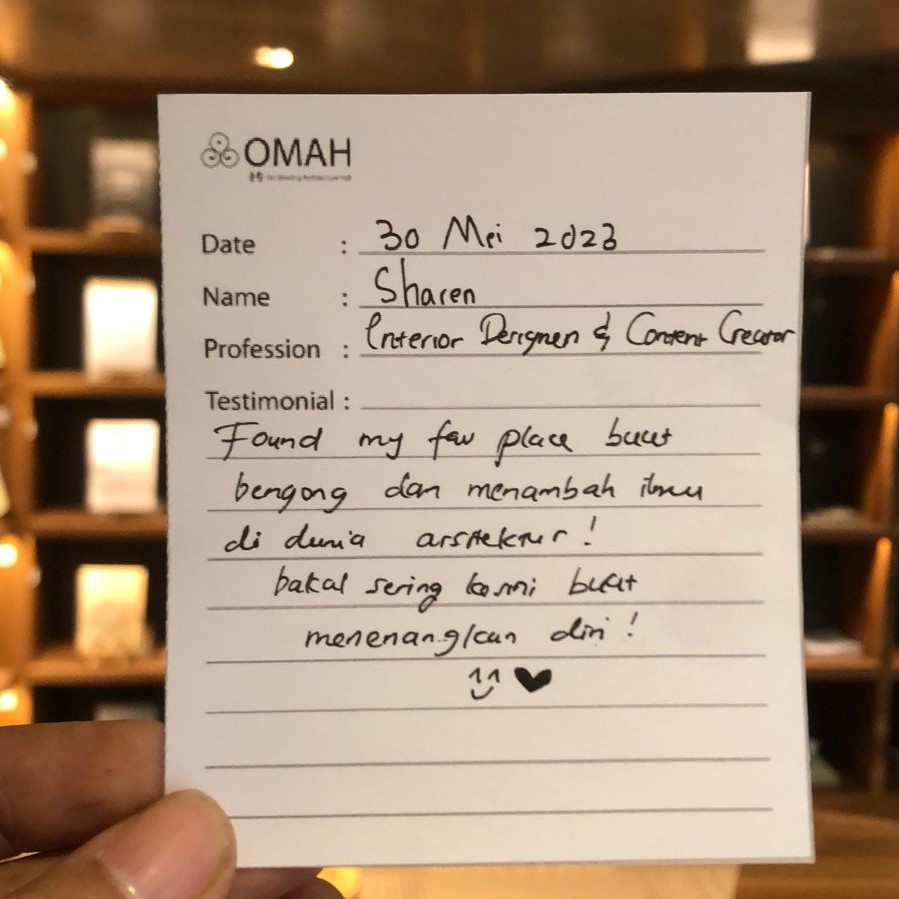 OMAH
Date : 30 Mei 2023
Name : Sharen
Profession : Interior Designer & Content Creator
Testimonial :
Found my fav place buat
bengong dan menambah ilmu
di dunia arsitektur!
bakal sering kesini buat
menenangkan diri!